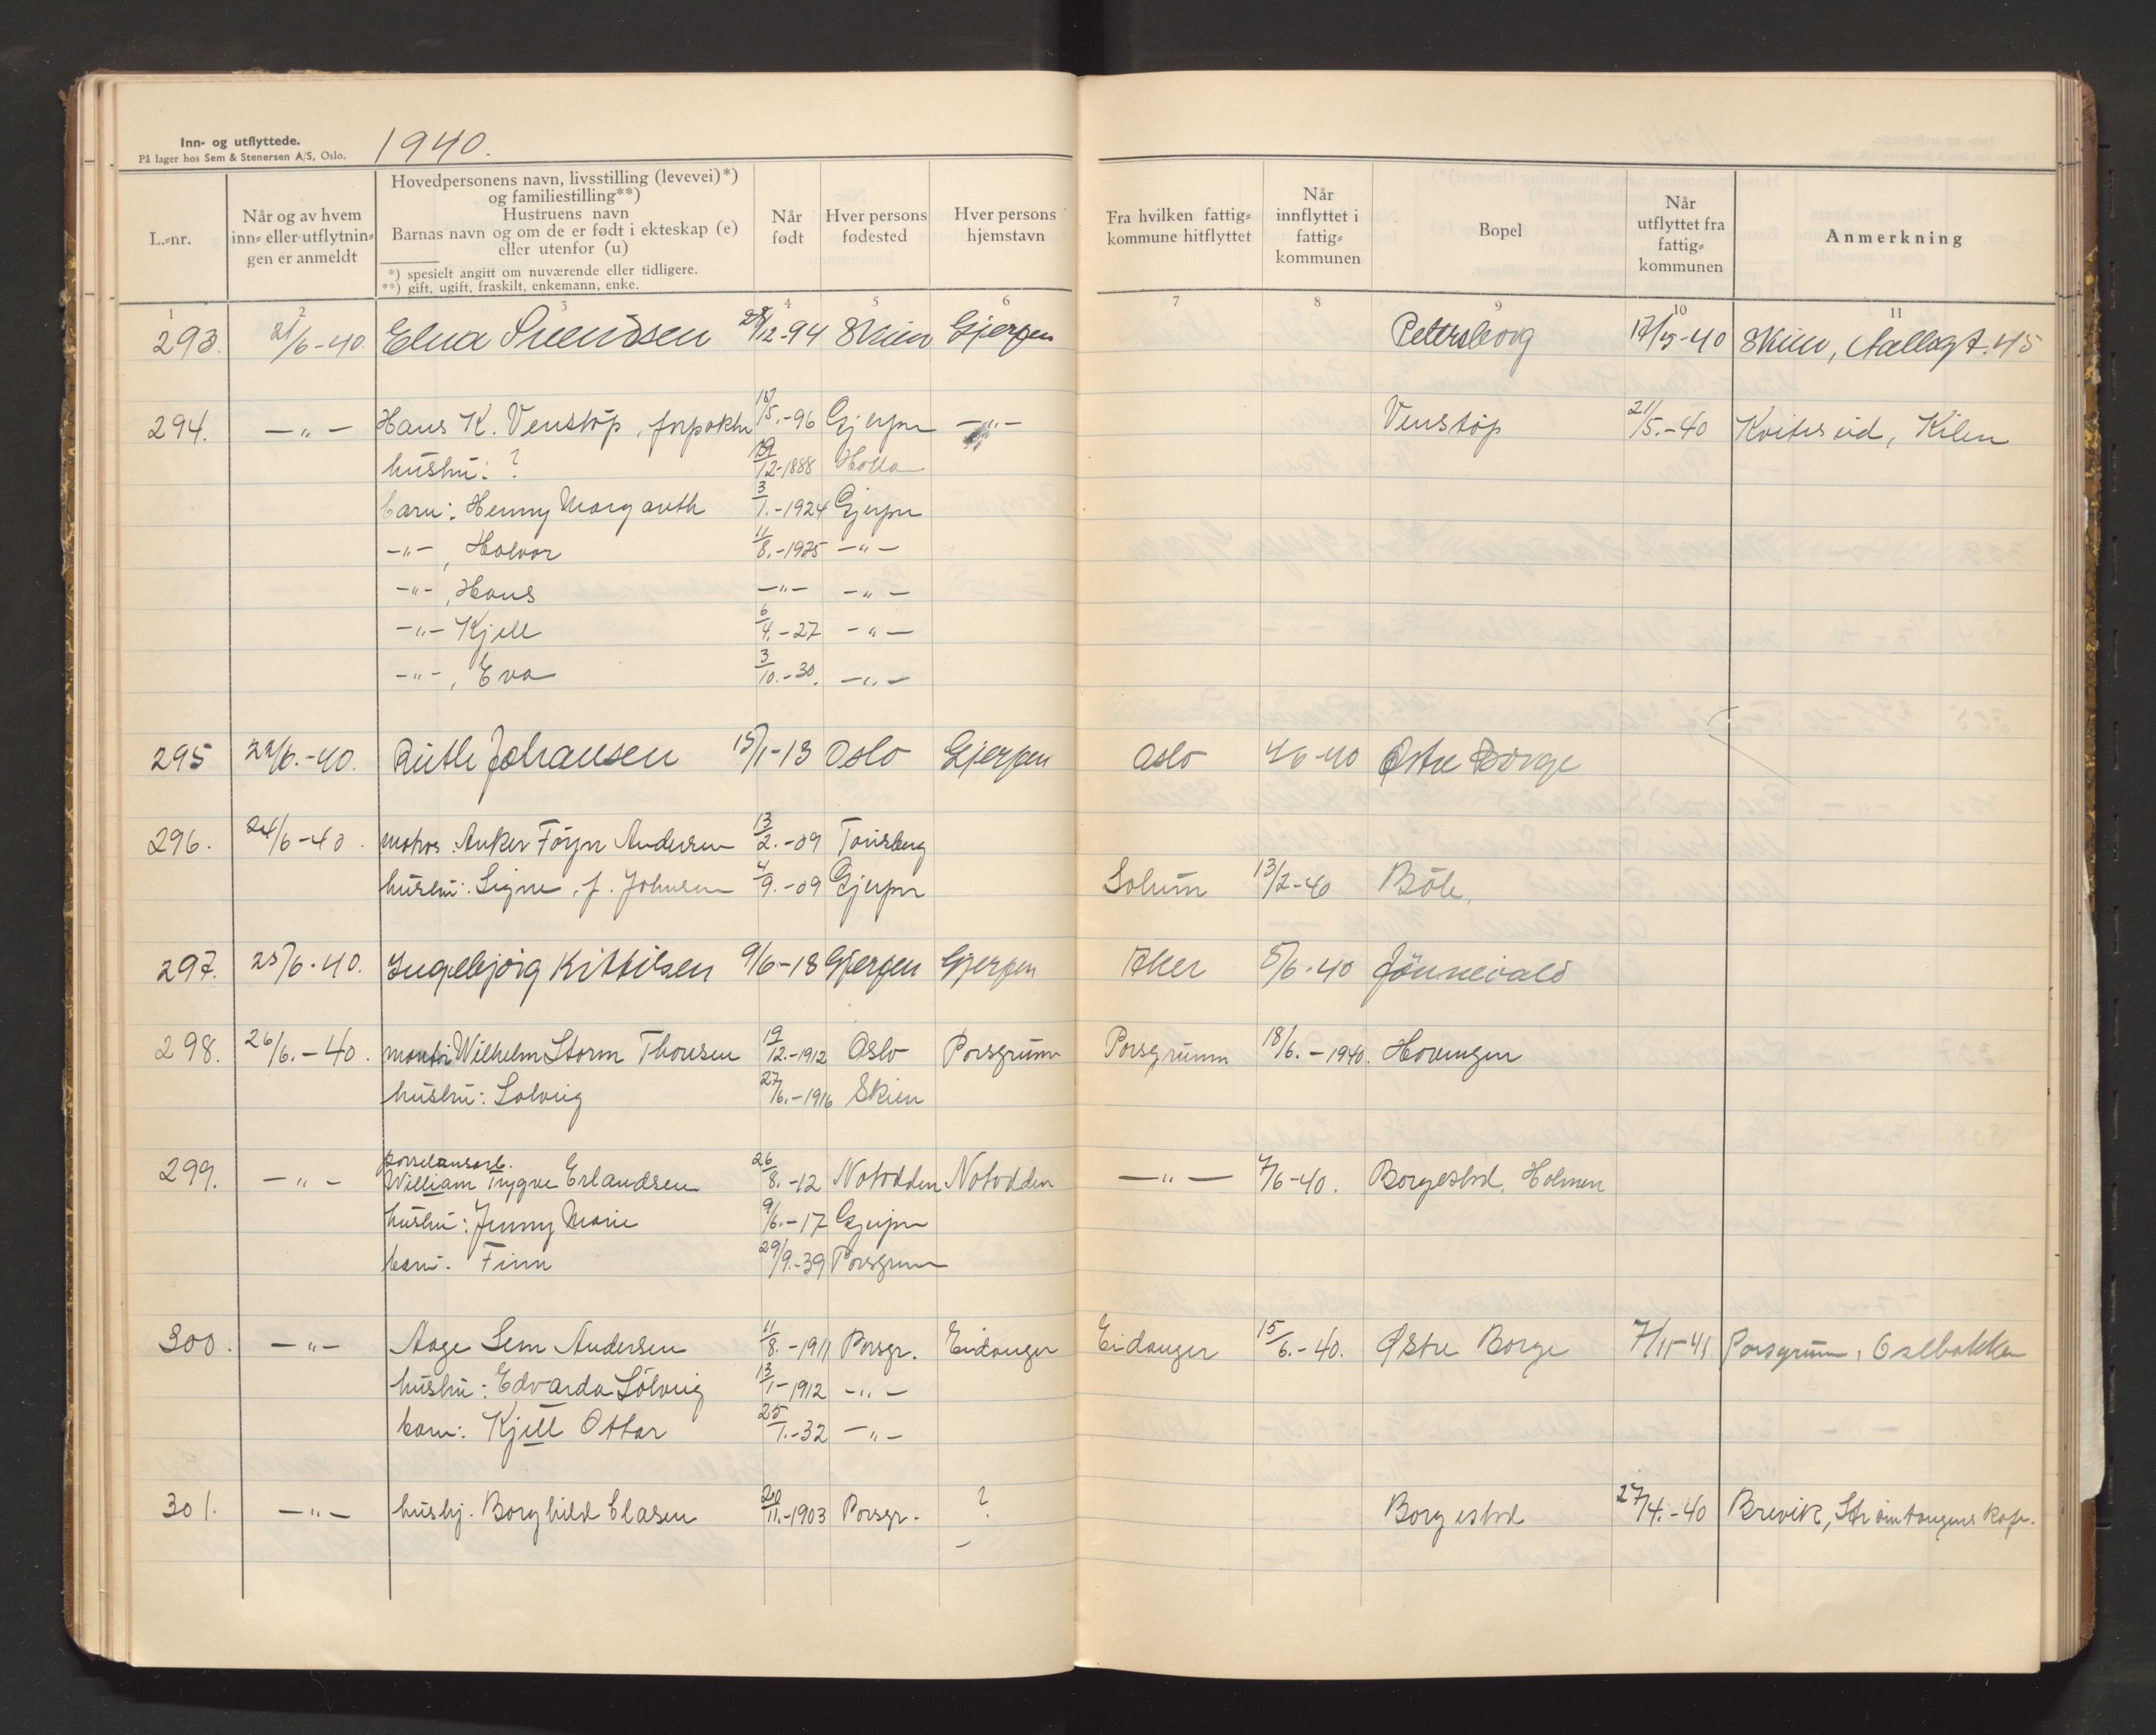 Inn- og utflyttede.
På lager hos Sem & Stenersen A/S, Oslo.
1940.
L.-nr.
Når og av hvem inn- eller utflytnin-gen er anmeldt
Hovedpersonens navn, livsstilling (levevei)*)
og familiestilling**)
Hustruens navn
Barnas navn og om de er født i ekteskap (e)
eller utenfor (u)
*) spesielt angitt om nuværende eller tidligere.
**) gift, ugift, fraskilt, enkemann, enke.
Når født
Hver persons fødested
Hver persons hjemstavn
Fra hvilken fattig-kommune hitflyttet
Når innflyttet i fattig-kommunen
Bopel
Når utflyttet fra fattig-kommunen
Anmerkning
1 2 3 4 5 6 7 8 9 10 11
293. 21/6-40. Elna Svendsen 28/12-94 Skien Gjerpen Petersborg 17/5-40 Skien, Aallsgt. 45
294. -"- Hans K. Venstøp, forpakter 18/5.-96 Gjerpen -"- Venstøp 21/5.-40 Kviteseid, Kilen
hustru: ? 19/12-1888 Holla
barn: Henny Margareth 3/1.-1924 Gjerpen
-"-, Halvor 11/8.-1925 -"-
-"-, Hans -"- -"-
-"- Kjell 6/4.-27 -"-
-"-, Eva 3/10.-30. -"-
295 22/6.-40. Ruth Johansen 15/1-13 Oslo Gjerpen Oslo 4/6-40 Østre Borge
296. 24/6-40. matros Anker Föyn Andersen 13/2.-09 Tönsberg
hustru: Signe, f. Johnsen 4/9.-09 Gjerpen Solum 13/2-40 Böle,
297. 25/6-40. Ingebjörg Kittilsen 9/6-18 Gjerpen Gjerpen Aker 5/6-40 Jönnevald
298. 26/6.-40. montör Wilhelm Storm Thoresen 19/12.-1912 Oslo Porsgrunn Porsgrunn 18/6.-1940. Hovengen
hustru: Solveig 27/6.-1916 Skien
299. -"- porselensarb.
William Trygve Erlandsen 26/8.-12 Notodden Notodden -"- 7/6-40. Borgestad, Holmen
hustru: Jenny Marie 9/6.-17 Gjerpen
barn. Finn 29/9.-39 Porsgrunn
300. -"- Aage Sem Andersen 11/8.-1911 Porsgr. Eidanger Eidanger 15/6.-40. Østre Borge 7/11-41 Porsgrunn, Oslbakken
hustru: Edvarda Sölveig 13/1-1912 -"-
barn: Kjell Ottar 25/1.-32 -"-
301. -"- hushj. Borghild Clasen 20/11.-1903 Porsgr. ? Borgestad 27/4.-40 Brevik, Strömtangens kafe.